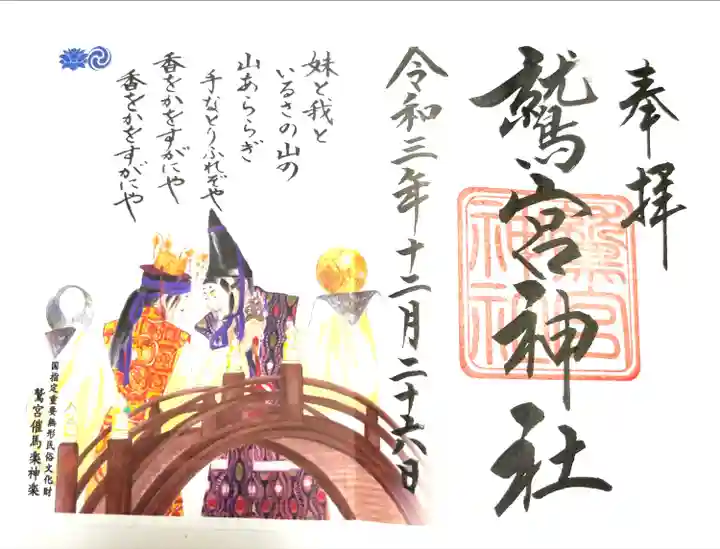 奉拝
鷲宮神社
鷲宮
神社
令和三年十二月二十六日
妹と我と
いるさの山の
山あららぎ
手なとりふれぞや
香をかをすがにや
香をかをすがにや
国指定重要無形民俗文化財
鷲宮催馬楽神楽